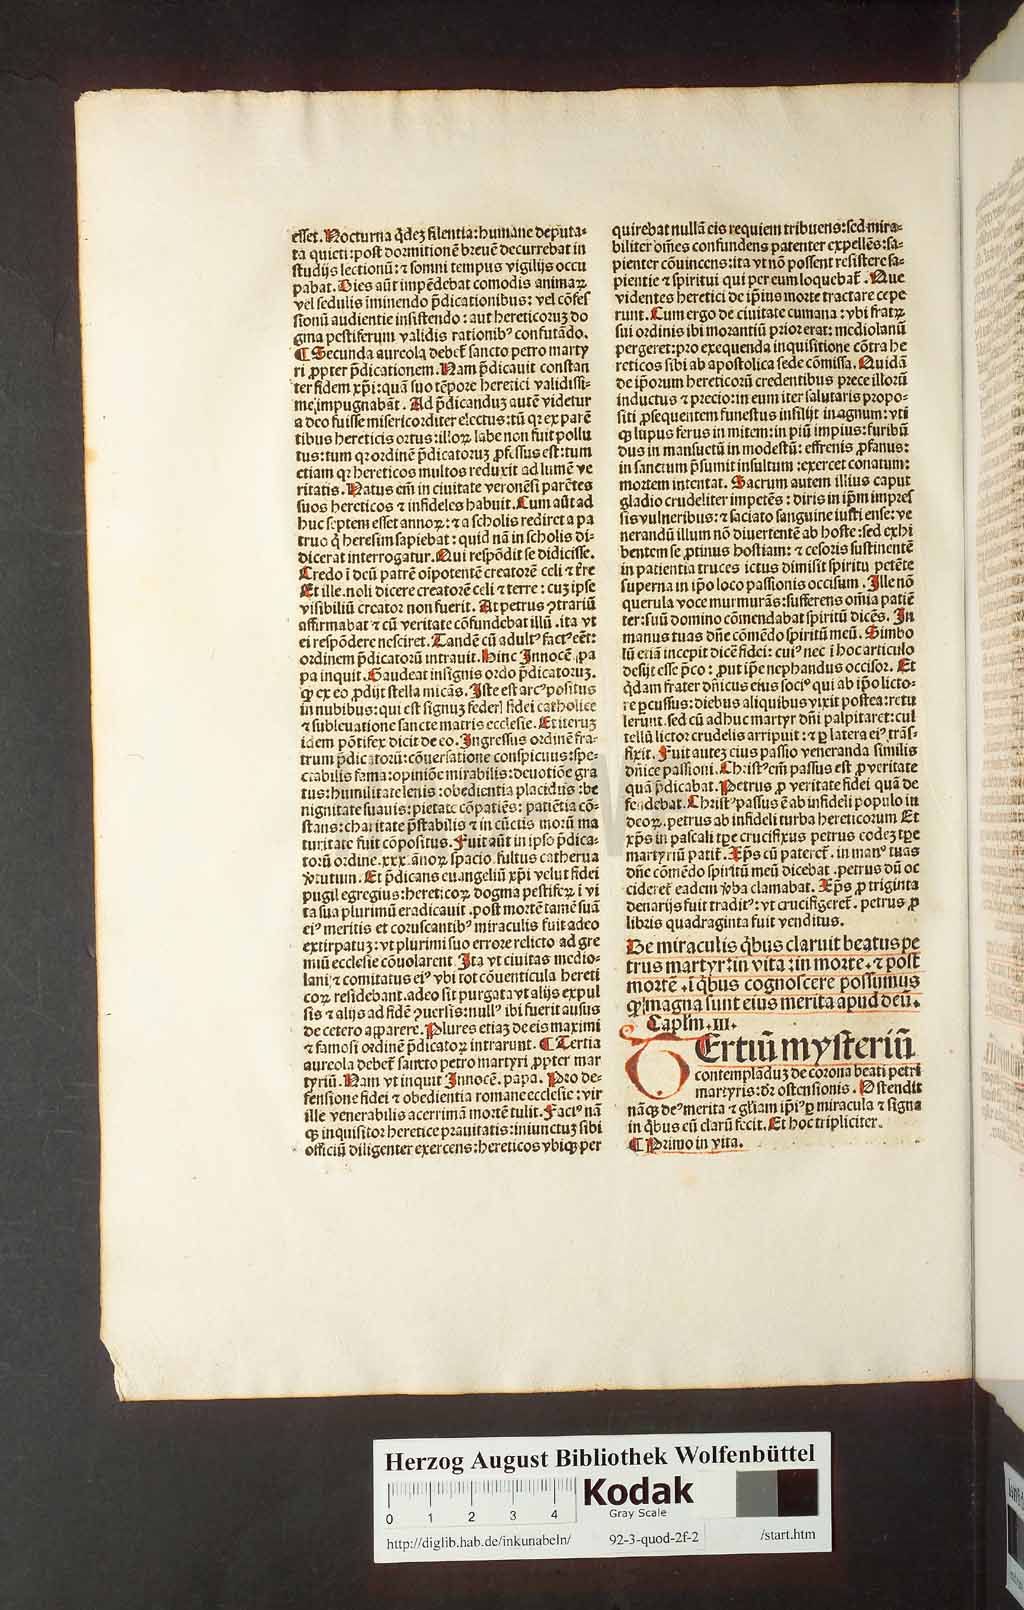 esset. Nocturna q̄dez silentia: humane deputa-
ta quieti: post dormitionē breuē decurrebat in
studijs lectionū: ⁊ somni tempus vigilijs occu
pabat. Dies aūt impēdebat comodis animaꝝ
vel sedulis iminendo p̄dicationibus: vel cōfes
sionū audientie insistendo: aut hereticoꝝ do
gma pestiferum validis rationibꝰ confutādo.
¶ Secunda aureola debet̄ sancto petro marty
ri ꝓpter p̄dicationem. Nam p̄dicauit constan
ter fidem xp̄i: quā suo tēpore heretici validissi-
me impugnabāt. Ad p̄dicanduꝫ autē videtur
a deo fuisse misericorditer electus: tū qꝛ ex parē
tibus hereticis ortus: illoꝝ labe non fuit pollu
tus: tum qꝛ ordinē p̄dicatoruꝫ ꝓfessus est: tum
etiam qꝛ hereticos multos reduxit ad lumē ve
ritatis. Natus em̄ in ciuitate veronēsi parētes
suos hereticos ⁊ infideles habuit. Cum aūt ad
huc septem esset annoꝝ: ⁊ a scholis rediret a pa
truo q̄ heresim sapiebat: quid nā in scholis di-
dicerat interrogatur. Qui respōdit se didicisse.
Credo ī deū patrē oīpotentē creatorē celi ⁊ t̄re
Et ille. noli dicere creatorē celi ⁊ terre: cuꝫ ipse
visibiliū creator non fuerit. At petrus ꝯtrariū
affirmabat ⁊ cū veritate cōfundebat illū. ita vt
ei respōdere nesciret. Tandē cū adultꝰ factꝰ eēt:
ordinem p̄dicatorū intrauit. Hinc Innocē. pa
pa inquit. Gaudeat insignis ordo p̄dicatoruꝫ.
qꝫ ex eo ꝓdijt stella micās. Iste est arcꝰ positus
in nubibus: qui est signuꝫ federꝭ fidei catholice
⁊ subleuatione sancte matris ecclesie. Et iteruꝫ
idem pōtifex dicit de eo. Ingressus ordinē fra-
trum p̄dicatorū: cōuersatione conspicuus: spe-
ctabilis fama: opiniōe mirabilis: deuotiōe gra
tus: humilitate lenis: obedientia placidus: be
nignitate suauis: pietate cōpatiēs: patiētia cō-
stans: charitate p̄stabilis ⁊ in cūctis morū ma
turitate fuit cōpositus. Fuit aūt in ipso p̄dica-
torū ordine. xxx. ānoꝝ spacio. fultus catherua
v̄tutum. Et p̄dicans euangeliū xp̄i velut fidei
pugil egregius: hereticoꝝ dogma pestifeꝝ ī vi
ta sua plurimū eradicauit. post mortē tamē suā
eiꝰ meritis et coruscantibꝰ miraculis fuit adeo
extirpatuꝫ: vt plurimi suo errore relicto ad gre
miū ecclesie cōuolarent. Ita vt ciuitas medio-
lani ⁊ comitatus eiꝰ vbi tot cōuenticula hereti
coꝝ residebant. adeo sit purgata vt alijs expul
sis ⁊ alijs ad fidē ꝯuersis: nullꝰ ibi fuerit ausus
de cetero apparere. Plures etiaꝫ de eis maximi
⁊ famosi ordinē p̄dicatoꝝ intrarunt. ¶ Tertia
aureola debet̄ sancto petro martyri ꝓpter mar
tyriū. Nam vt inquit Innocē. papa. Pro de-
fensione fidei ⁊ obedientia romane ecclesie: vir
ille venerabilis acerrimā mortē tulit. Factꝰ nā
qꝫ inquisitor heretice prauitatis: iniunctuꝫ sibi
officiū diligenter exercens: hereticos vbiqꝫ per
quirebat nullā eis requiem tribuens: sed mira-
biliter om̄es confundens patenter expellēs: sa-
pienter cōuincens: ita vt nō possent resistere sa-
pientie ⁊ spiritui qui per eum loquebat̄. Que
videntes heretici de ip̄ius morte tractare cepe
runt. Cum ergo de ciuitate cumana: vbi fratꝝ
sui ordinis ibi morantiū prior erat: mediolanū
pergeret: pro exequenda inquisitione cōtra he
reticos sibi ab apostolica sede cōmissa. Quidā
de ip̄orum hereticorū credentibus prece illorū
inductus ⁊ precio: in eum iter salutaris propo-
siti ꝓsequentem funestus insilijt in agnum: vti
qꝫ lupus ferus in mitem: in piū impius: furibū
dus in mansuetū in modestū: effrenis ꝓfanus:
in sanctum p̄sumit insultum: exercet conatum:
mortem intentat. Sacrum autem illius caput
gladio crudeliter impetēs: diris in ip̄m impres
sis vulneribus: ⁊ saciato sanguine iusti ense: ve
nerandū illum nō diuertentē ab hoste: sed exhi
bentem se ꝓtinus hostiam: ⁊ cesoris sustinentē
in patientia truces ictus dimisit spiritu petēte
superna in ip̄o loco passionis occisum. Ille nō
querula voce murmurās: sufferens om̄ia patiē
ter: suū domino cōmendabat spiritū dicēs. In
manus tuas dn̄e cōmēdo spiritū meū. Simbo
lū etiā incepit dicē fidei: cuiꝰ nec ī hoc articulo
desijt esse p̄co: ꝓut ip̄e nephandus occisor. Et
q̄dam frater dn̄icus eius sociꝰ qui ab ip̄o licto-
re ꝑcussus: diebus aliquibus vixit postea: retu
lerunt. sed cū adhuc martyr dn̄i palpitaret: cul
tellū lictor crudelis arripuit: ⁊ ꝑ latera ei trās-
fixit. Fuit auteꝫ eius passio veneranda similis
dn̄ice passioni. Christꝰ em̄ passus est ꝓ veritate
quā p̄dicabat. Petrus ꝓ veritate fidei quā de
fendebat. Christꝰ passus ē ab infideli populo iu
deoꝝ. petrus ab infideli turba hereticorum Et
xp̄s in pascali tp̄e crucifixus petrus codeꝫ tp̄e
martyriū patit̄. Xp̄s cū pateret̄. in manꝰ tuas
dn̄e cōmēdo spiritū meū dicebat. petrus dū oc
cideret̄ eadem v̄ba clamabat. Xp̄s ꝓ triginta
denarijs fuit traditꝰ: vt crucifigeret̄. petrus ꝓ
libris quadraginta fuit venditus.
De miraculis q̄bus claruit beatus pe
trus martyr: in vita: in morte. ⁊ post
mortē. ī q̄bus cognoscere possumus
qꝫ magna sunt eius merita apud deū.
Capl'm. III.
TErtiū mysteriū
contempladuꝫ de corona beati petri
martyris: dr̄ ostensionis. Ostendit
nāqꝫ deꝰ merita ⁊ gl'iam ip̄i ꝑ miracula ⁊ signa
in q̄bus eū clarū fecit. Et hoc tripliciter.
¶ Primo in vita.
Herzog August Bibliothek Wolfenbüttel
0 1 2 3 4
Kodak
Gray Scale
http://diglib.hab.de/inkunabeln/ 92-3-quod-2f-2 /start.htm